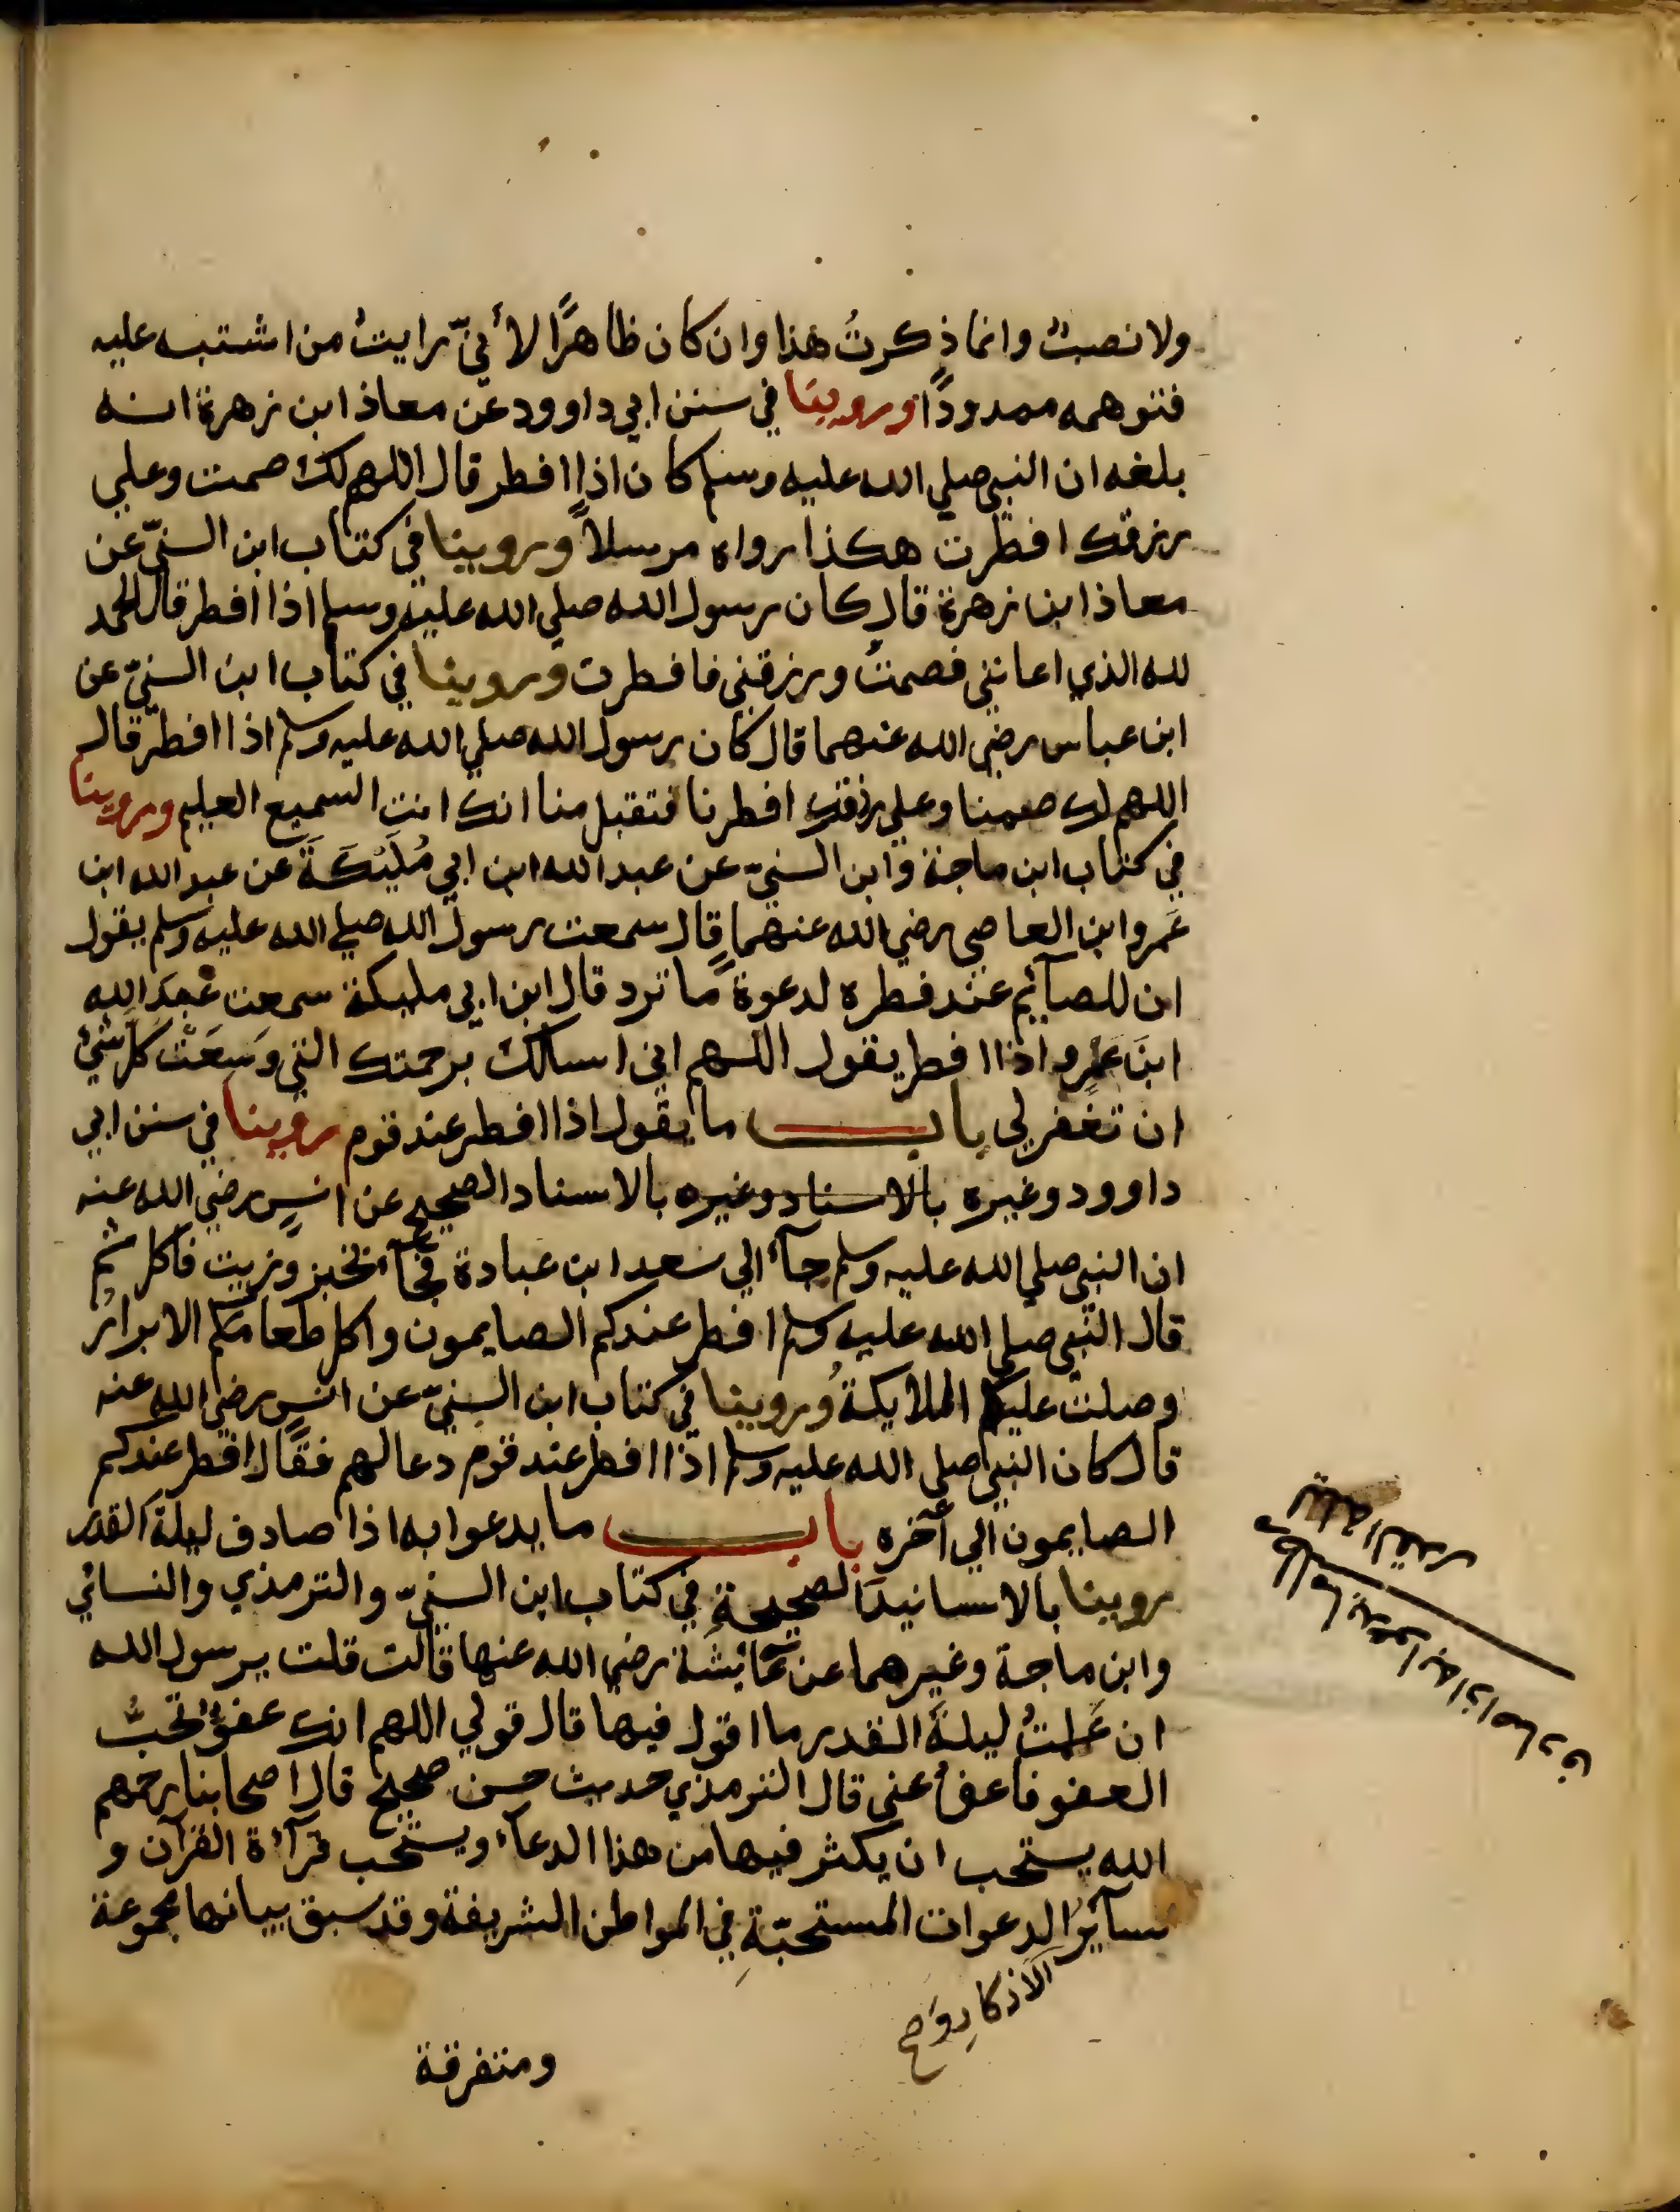 ولا نصبٌ وانما ذكرتُ هذا وان كان ظاهرًا لأنيّ رايتُ من اشتبه عليه
فتوهمه ممدودًا وروينا في سنن ابي داوود عن معاذ ابن زهرة انه
بلغه ان النبي صلي الله عليه وسلم كان اذا افطر قال اللهم لك صمت وعلي
رزقك افطرت هكذا رواه مرسلاً وروينا في كتاب ابن السنيّ عن
معاذ ابن زهرة قال كان رسول الله صلي الله عليه وسلم اذا افطر قال الحمد
لله الذي اعانني فصمتُ ورزقني فافطرت وروينا في كتاب ابن السنيّ عن
ابن عباس رضي الله عنهما قال كان رسول الله صلي الله عليه وسلم اذا افطر قال
اللهم لك صمنا وعلي رزقك افطرنا فتقبل منا انك انت السميع العليم وروينا
في كتاب ابن ماجة وابن السنيّ عن عبد الله ابن ابي مُلَيْكَةَ عن عبد الله ابن
عَمرو ابن العاصي رضي الله عنهما قال سمعت رسول الله صلي الله عليه وسلم يقول
ان للصآئم عند فطره لدعوةً ما ترد قال ابن ابي مليكة سمعت عبدَ الله
ابنَ عمرو اذا افطر يقول اللهم اني اسالك برحمتك التي وَسِعَتْ كل شيْء
ان تغفر لي باب ما يقول اذا افطر عند قوم روينا في سنن ابي
داوود وغيره بالاسناد وغيره بالاسناد الصحيح عن انسٍ رضي الله عنه
ان النبي صلي الله عليه وسلم جآء الي سعد ابن عبادة فجآء بخبز وزيت فاكل ثم
قال النبي صلي الله عليه وسلم افطر عندكم الصايمون واكل طعامكم الابرارُ
وصلت عليكم الملايكةُ وروينا في كتاب ابن السنيّ عن انسٍ رضي الله عنه
قال كان النبي صلي الله عليه وسلم اذا افطر عند قوم دعا لهم فقال افطر عندكم
الصايمون الي آخره باب ما يدعوا به اذا صادف ليلة القدر
روينا بالاسانيد الصحيحة في كتاب ابن السنيّ والترمذي والنسائي
وابن ماجة وغيرهما عن عآئشة رضي الله عنها قالت قلت يرسول الله
ان عَلمتُ ليلةَ القدر ما اقول فيها قال قولي اللهم انك عفوٌّ تحبُّ
العفو فاعف عني قال الترمذي حديث حسن صحيح قال اصحابنا رحمهم
الله يستحب ان يكثر فيها من هذا الدعآء ويستحب قرآءة القرآن و
سآئرُ الدعوات المستحبّةِ في المواطن الشريفة وقد سبق بيانها مجموعة
الاذكارِ وَ صح
ومتفرقة
مطلب ما يدعوا به اذا صادف
ليلة القدر